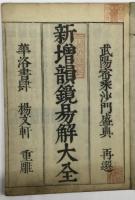 武陽密乘沙門盛典　再選
新增韻鏡易解大全
華洛書肆　楊文軒　重雕